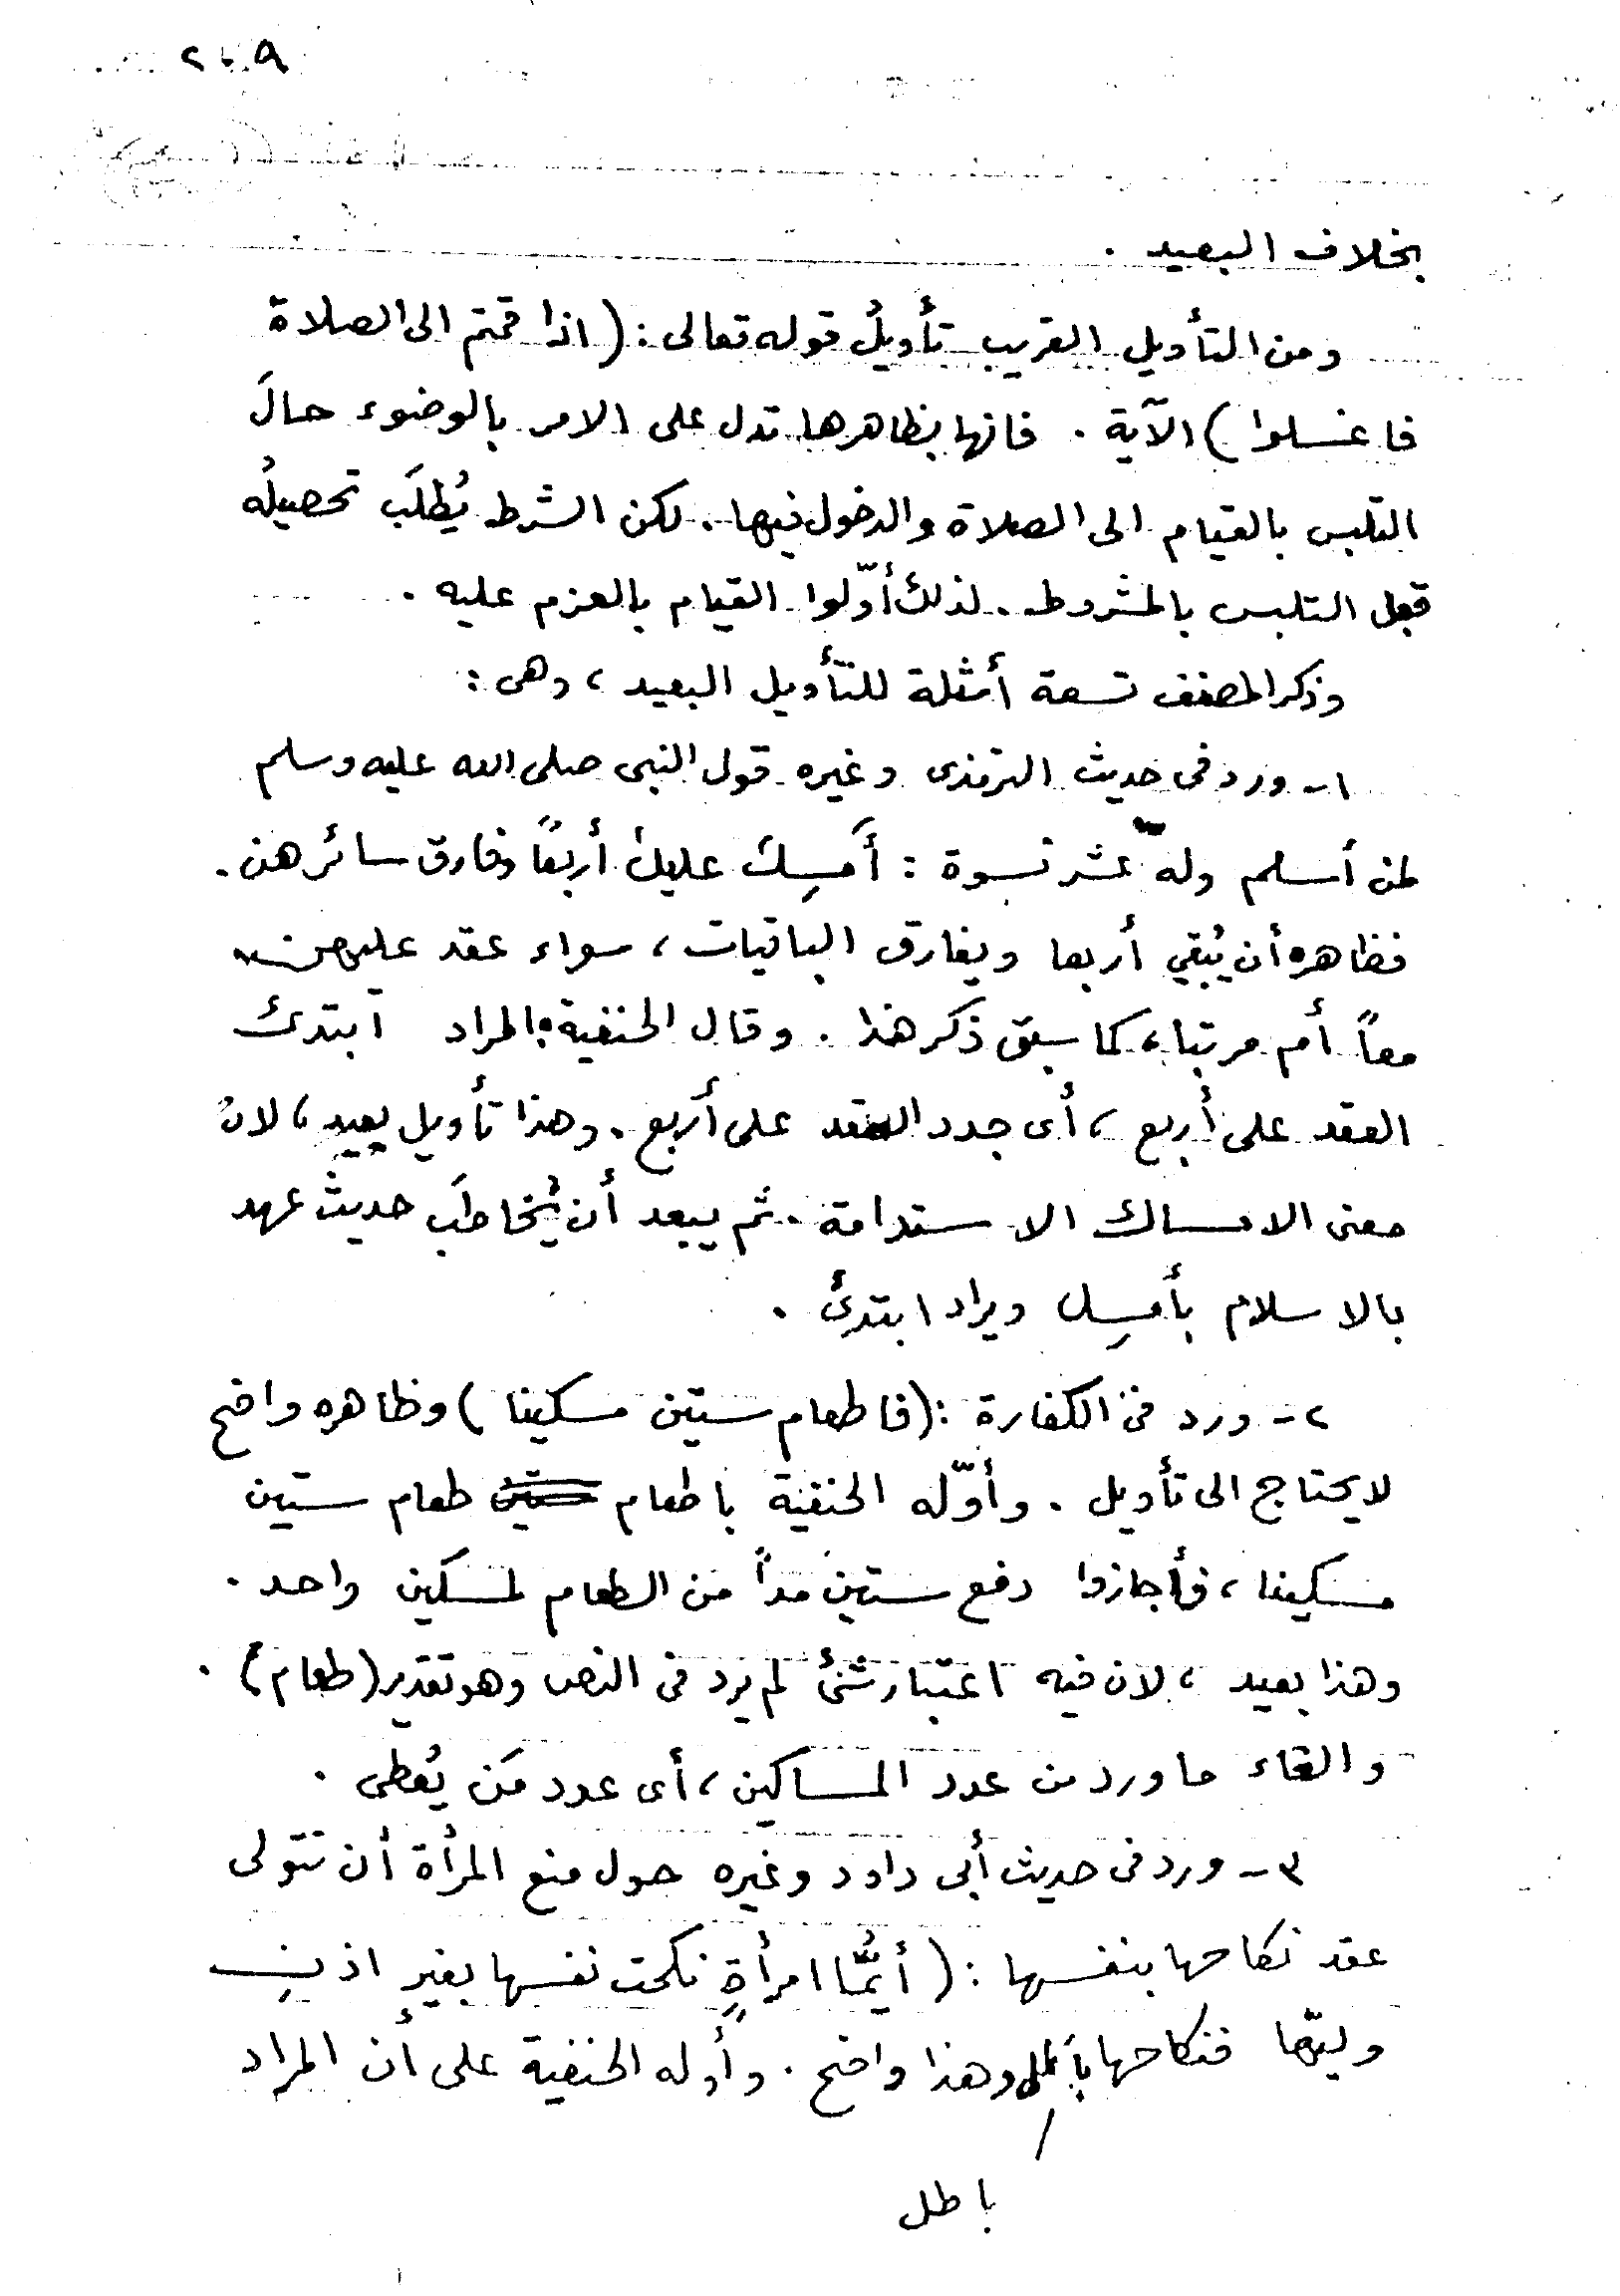 ٢٠٩
بخلاف البعيد .
ومن التأويل القريب تأويلُ قوله تعالى : ( اذا قمتم الى الصلاة
فاغسلوا ) الآية . فانها بظاهرها تدل على الامر بالوضوء حالَ
التلبس بالقيام الى الصلاة والدخول فيها . لكن الشرط يُطلَب تحصيلُه
قبل التلبس بالمشروط . لذلك أوّلوا القيام بالعزم عليه .
وذكر المصنف تسعة أمثلة للتأويل البعيد ، وهى :
١ - ورد فى حديث الترمذى وغيره قول النبى صلى الله عليه وسلم
لمن أسلم وله عشر نسوة : أَمسِك عليك أربعاً وفارق سائرهن .
فظاهره أن يُبقي أربعا ويفارق الباقيات ، سواء عقد عليهن
معاً أم مرتبا ، كما سبق ذكر هذا . وقال الحنفية : المراد ابتدئ
العقد على أربع ، أى جدد العقد على أربع . وهذا تأويل بعيد ، لان
معنى الامساك الاستدامة . ثم يبعد أن يُخاطَب حديثُ عهد
بالاسلام بأمسِك ويراد ابتدئ .
٢ - ورد فى الكفارة : ( فاطعام ستين مسكينا ) وظاهره واضح
لا يحتاج الى تأويل . وأوّله الحنفية باطعام طعام ستين
مسكينا ، فأجازوا دفع ستين مداً من الطعام لمسكين واحد .
وهذا بعيد ، لان فيه اعتبار شئ لم يرد فى النص وهو تقدير ( طعام ) .
والغاء ما ورد من عدد المساكين ، أى عدد مَن يُعطى .
٣ - ورد فى حديث أبى داود وغيره حول منع المرأة أن تتولى
عقد نكاحها بنفسها : ( أيُّما امرأةٍ نكحت نفسها بغير اذنِ
وليّها فنكاحها باطل وهذا واضح . وأوله الحنفية على أن المراد
باطل